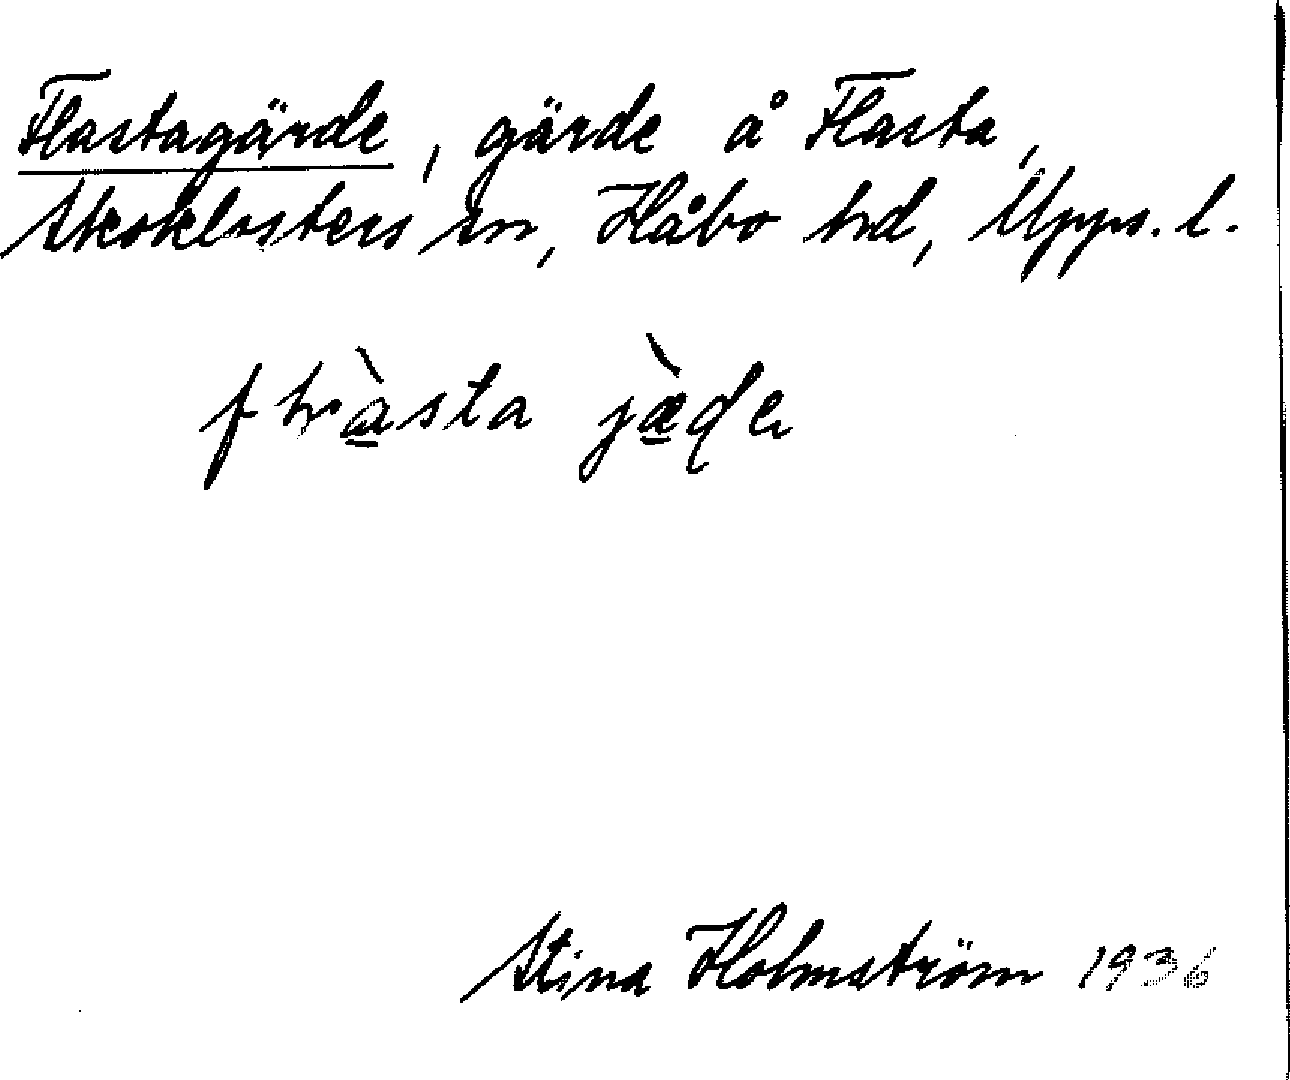 Flastagärde, gärde å Flasta,
Skoklosters sn, Håbo hd, Upps. l.
Stina Holmström 1936